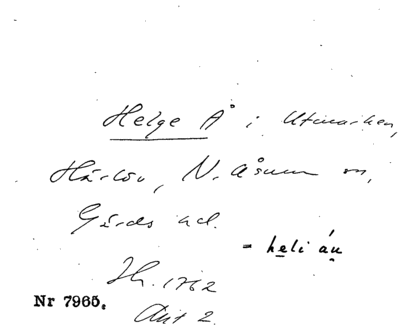 Helge Å i Utmarken,
Härlöv, N. Åsum sn,
Gärds hd.
= heli åṇ
Hh. 1762
Nr 7965.
Akt 2.